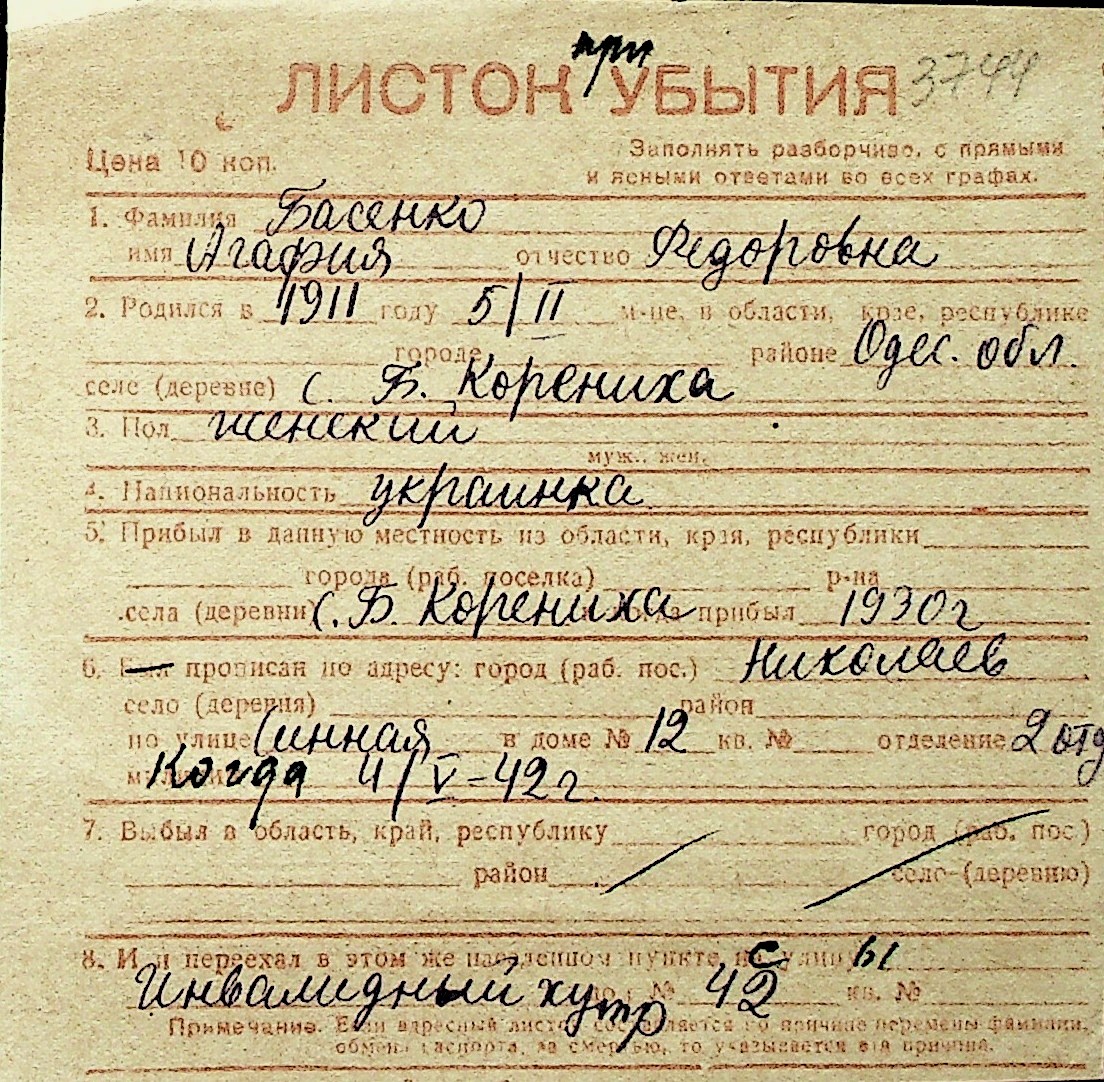 при
ЛИСТОК УБЫТИЯ 3744
Цена 10 коп.
Заполнять разборчиво, с прямыми
и ясными ответами во всех графах.
1. Фамилия Басенко
имя Агафия отчество Федоровна
2. Родился в 1911 году 5/II м-це, в области, крае, республике
городе районе Одес. обл.
селе (деревне) с. Б. Корениха
3. Пол женский
муж., жен.
4. Национальность украинка
5. Прибыл в данную местность из области, края, республики
города (раб. поселка) р-на
села (деревни) с. Б. Корениха когда прибыл 1930 г
6. Был прописан по адресу: город (раб. пос.) Николаев
село (деревня) район
по улице Синная в доме № 12 кв. № отделение 2 отд
Когда 4/V-42 г.
7. Выбыл в область, край, республику город (раб. пос.)
район село (деревню)
8. И и переехал в этом же населенном пункте, на улицу с ы
Инвалидный хутор № 42 кв. №
Примечание. Если адресный листок составляется по причине перемены фамилии,
обмена паспорта, за смертью, то указывается эта причина.